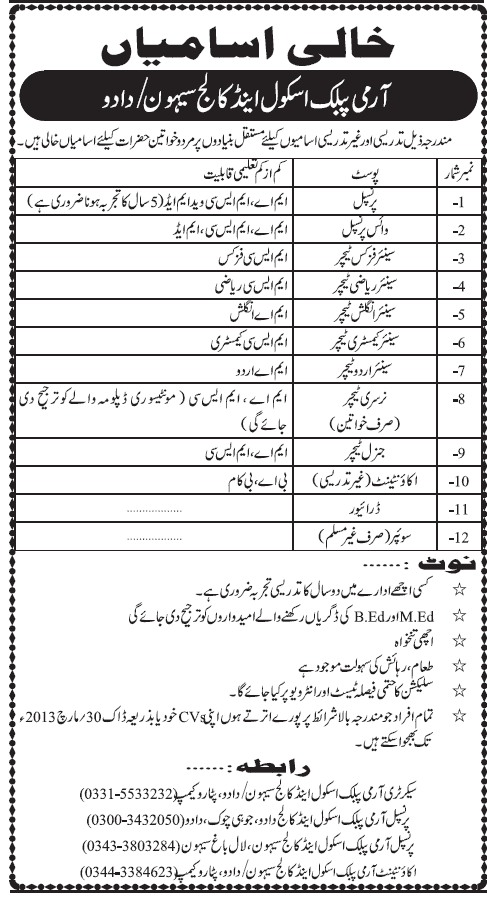 خالی اسامیاں
آرمی پبلک اسکول اینڈ کالج سیہون/دادو
مندرجہ ذیل تدریسی اور غیر تدریسی اسامیوں کیلئے مستقل بنیادوں پر مرد و خواتین حضرات کیلئے اسامیاں خالی ہیں۔
نمبر شمار پوسٹ کم از کم تعلیمی قابلیت
1- پرنسپل ایم اے، ایم ایس سی وید ایم ایڈ (5 سال کا تجربہ ہونا ضروری ہے)
2- وائس پرنسپل ایم اے، ایم ایس سی، ایم ایڈ
3- سینئر فزکس ٹیچر ایم ایس سی فزکس
4- سینئر ریاضی ٹیچر ایم ایس سی ریاضی
5- سینئر انگلش ٹیچر ایم اے انگلش
6- سینئر کیمسٹری ٹیچر ایم ایس سی کیمسٹری
7- سینئر اردو ٹیچر ایم اے اردو
8- نرسری ٹیچر ایم اے، ایم ایس سی (مونٹیسوری ڈپلومہ والے کو ترجیح دی
(صرف خواتین) جائے گی)
9- جنرل ٹیچر ایم اے، ایم ایس سی
10- اکاؤنٹینٹ (غیر تدریسی) بی اے، بی کام
11- ڈرائیور ..................
12- سوئپر (صرف غیر مسلم) ..................
نوٹ :------
☆ کسی اچھے ادارے میں دو سال کا تدریسی تجربہ ضروری ہے۔
☆ M.Ed اور B.Ed کی ڈگریاں رکھنے والے امیدواروں کو ترجیح دی جائے گی
☆ اچھی تنخواہ
☆ طعام، رہائش کی سہولت موجود ہے
☆ سلیکشن کا حتمی فیصلہ ٹیسٹ اور انٹرویو پر کیا جائے گا۔
☆ تمام افراد جو مندرجہ بالا شرائط پر پورے اترتے ہوں اپنی CVs خود یا بذریعہ ڈاک 30/مارچ 2013ء
تک بھجوا سکتے ہیں۔
رابطہ :------
سیکرٹری آرمی پبلک اسکول اینڈ کالج سیہون/دادو، پٹارو کیمپ (0331-5533232)
پرنسپل آرمی پبلک اسکول اینڈ کالج دادو، جوہی چوک، دادو (0300-3432050)
پرنسپل آرمی پبلک اسکول اینڈ کالج سیہون، لال باغ سیہون (0343-3803284)
اکاؤنٹینٹ آرمی پبلک اسکول اینڈ کالج سیہون/دادو، پٹارو کیمپ (0344-3384623)